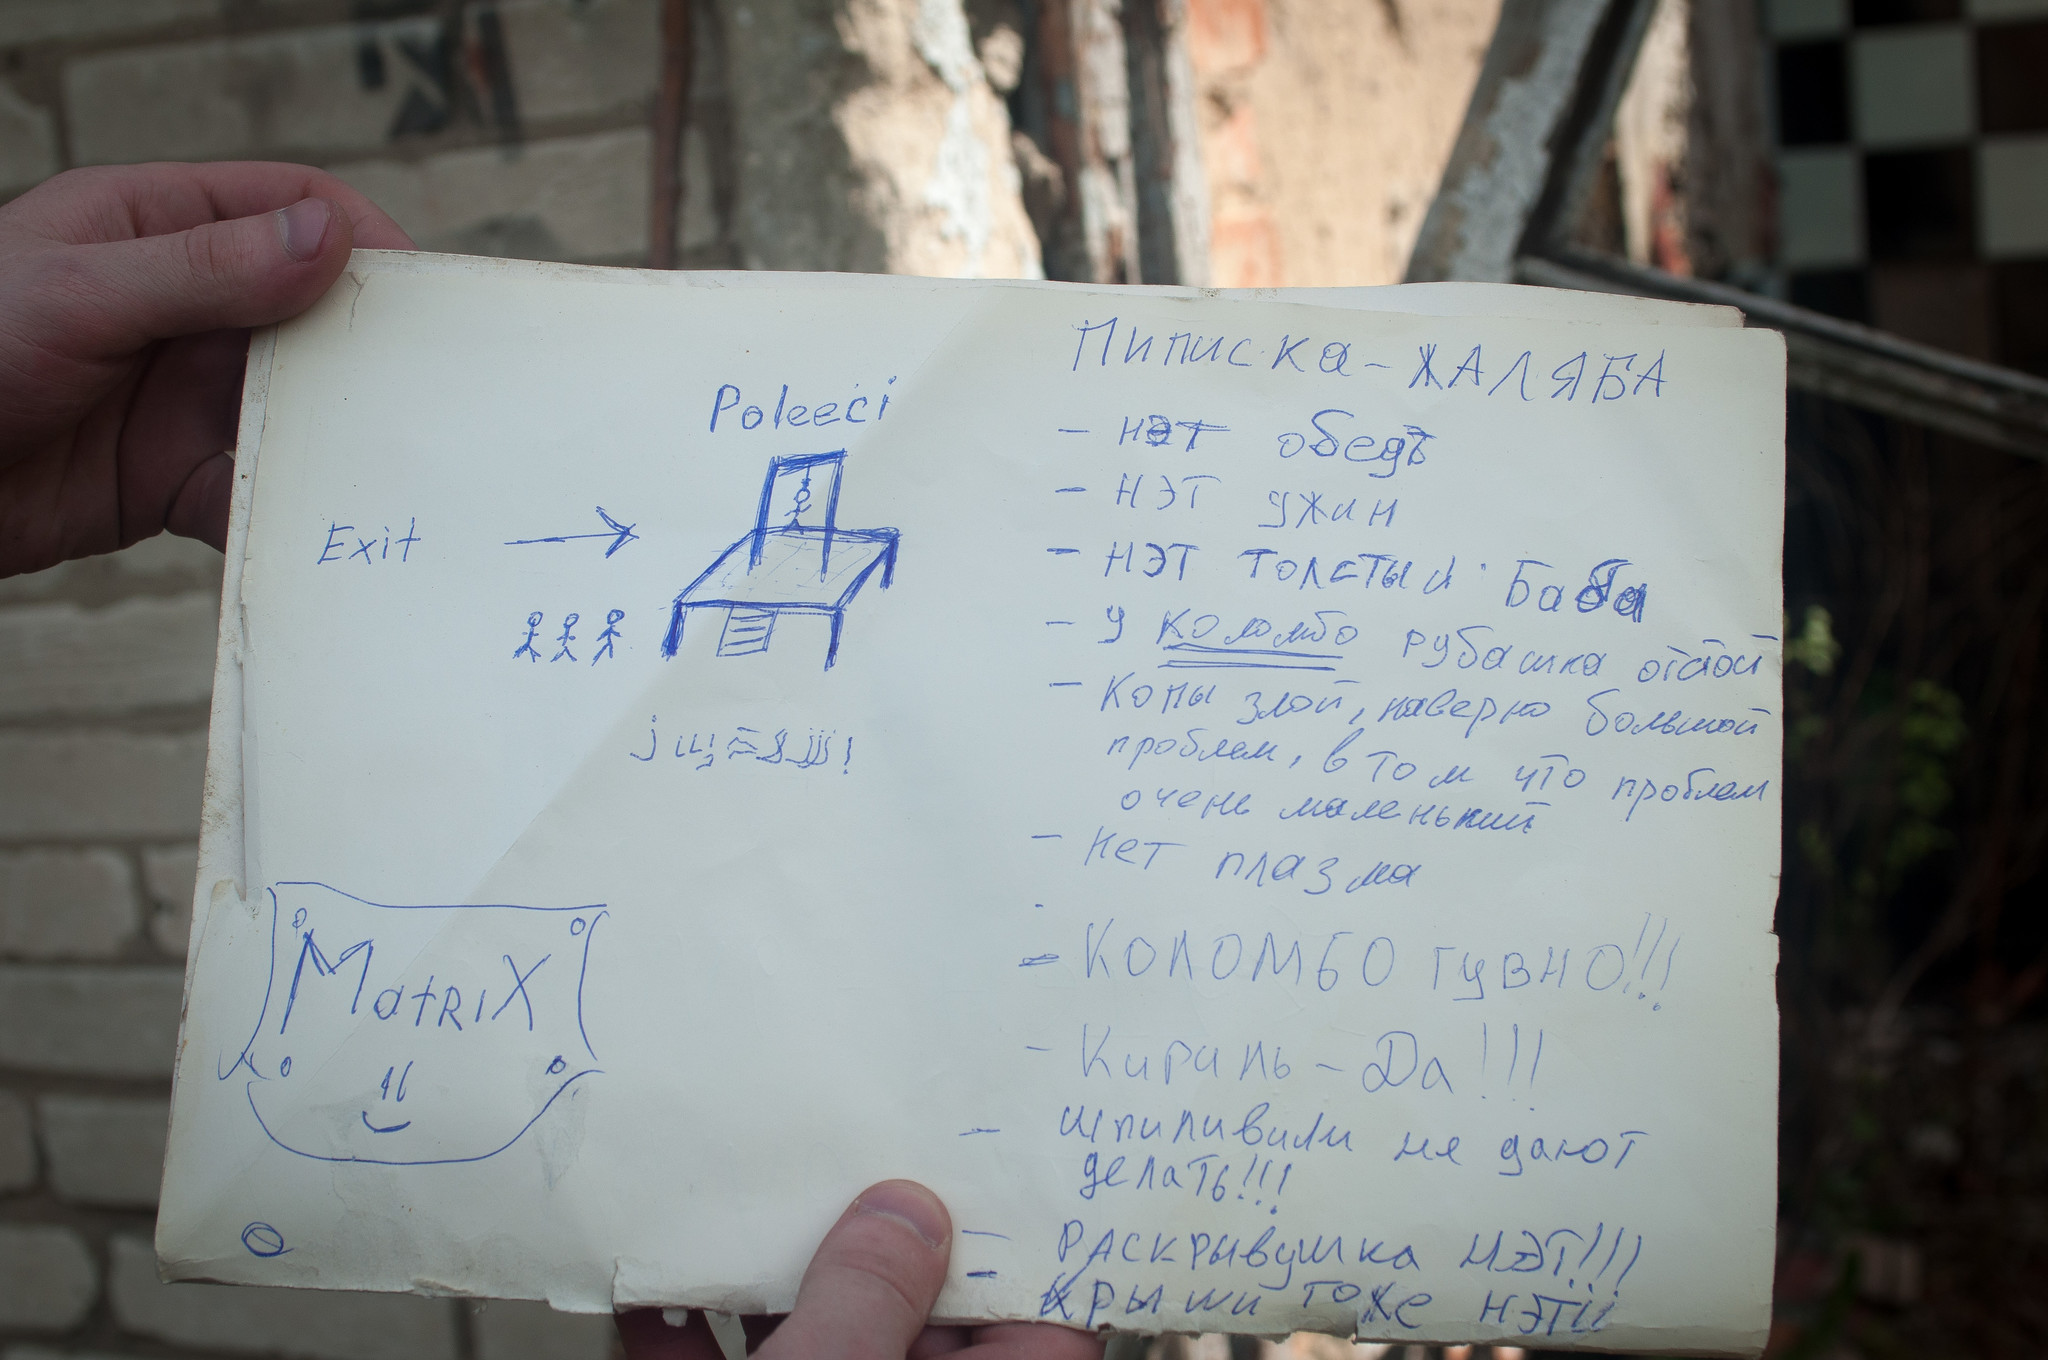 Poleeci
Exit
MatriX
ПИПИСКА - ЖАЛЯБА
- НЭТ обедъ
- НЭТ ужин
- НЭТ толстый Баба
- У Коломбо рубашка отстой
- Копы злой, наверно большой
проблем, в том что проблем
очень маленький
- Нет плазма
- КОЛОМБО ГУВНО!!!
- Кириль - Да!!!
- Шпиливили не дают
делать!!!
- РАСКРЫВУШКА НЭТ!!!
- Крыши тоже НЭТ!!